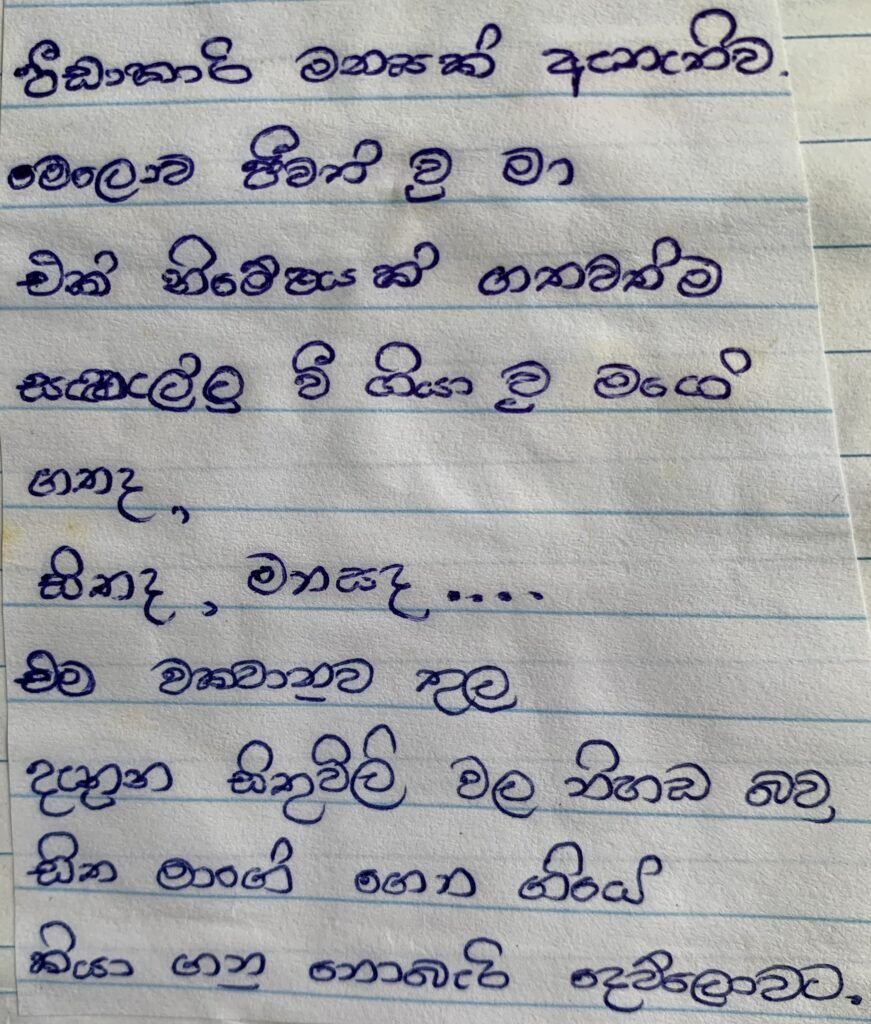 පීඩාකාරි මනසක් අයාැතිව.
මෙලොව ජීවත් වු මා
එක් නිමේෂයක් ගතවත්ම
සැහැල්ලු වී ගියා වු මගේ
ගතද,
සිතද, මනසද ....
එම වකවානුව තුල
දැනුන සිතුවිලි වල නිහඩ බව
සිත මාගේ ගෙන ගියේ
කියා ගනු නොබැරි දෙව්ලොවට.